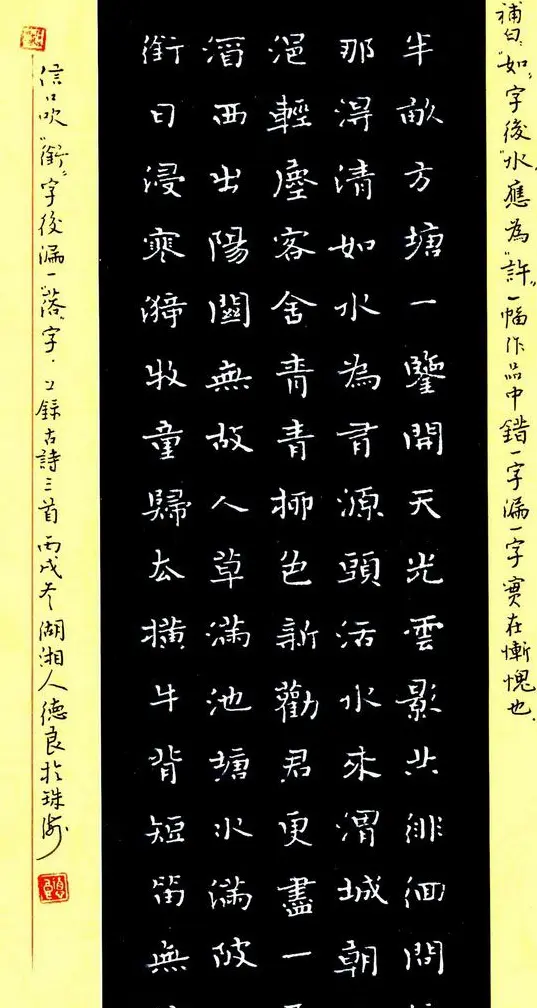 補曰："如"字後"水"應為"許"一幅作品中錯一字漏一字實在慚愧也.
半畝方塘一鑒開天光雲影共徘徊問
那得清如水為有源頭活水來渭城朝
浥輕塵客舍青青柳色新勸君更盡一
酒西出陽關無故人草滿池塘水滿陂
銜日浸寒漪牧童歸去橫牛背短笛無
信口吹"銜"字後漏一"落"字．上錄古詩三首 丙戌冬 湖湘人德良於珠海